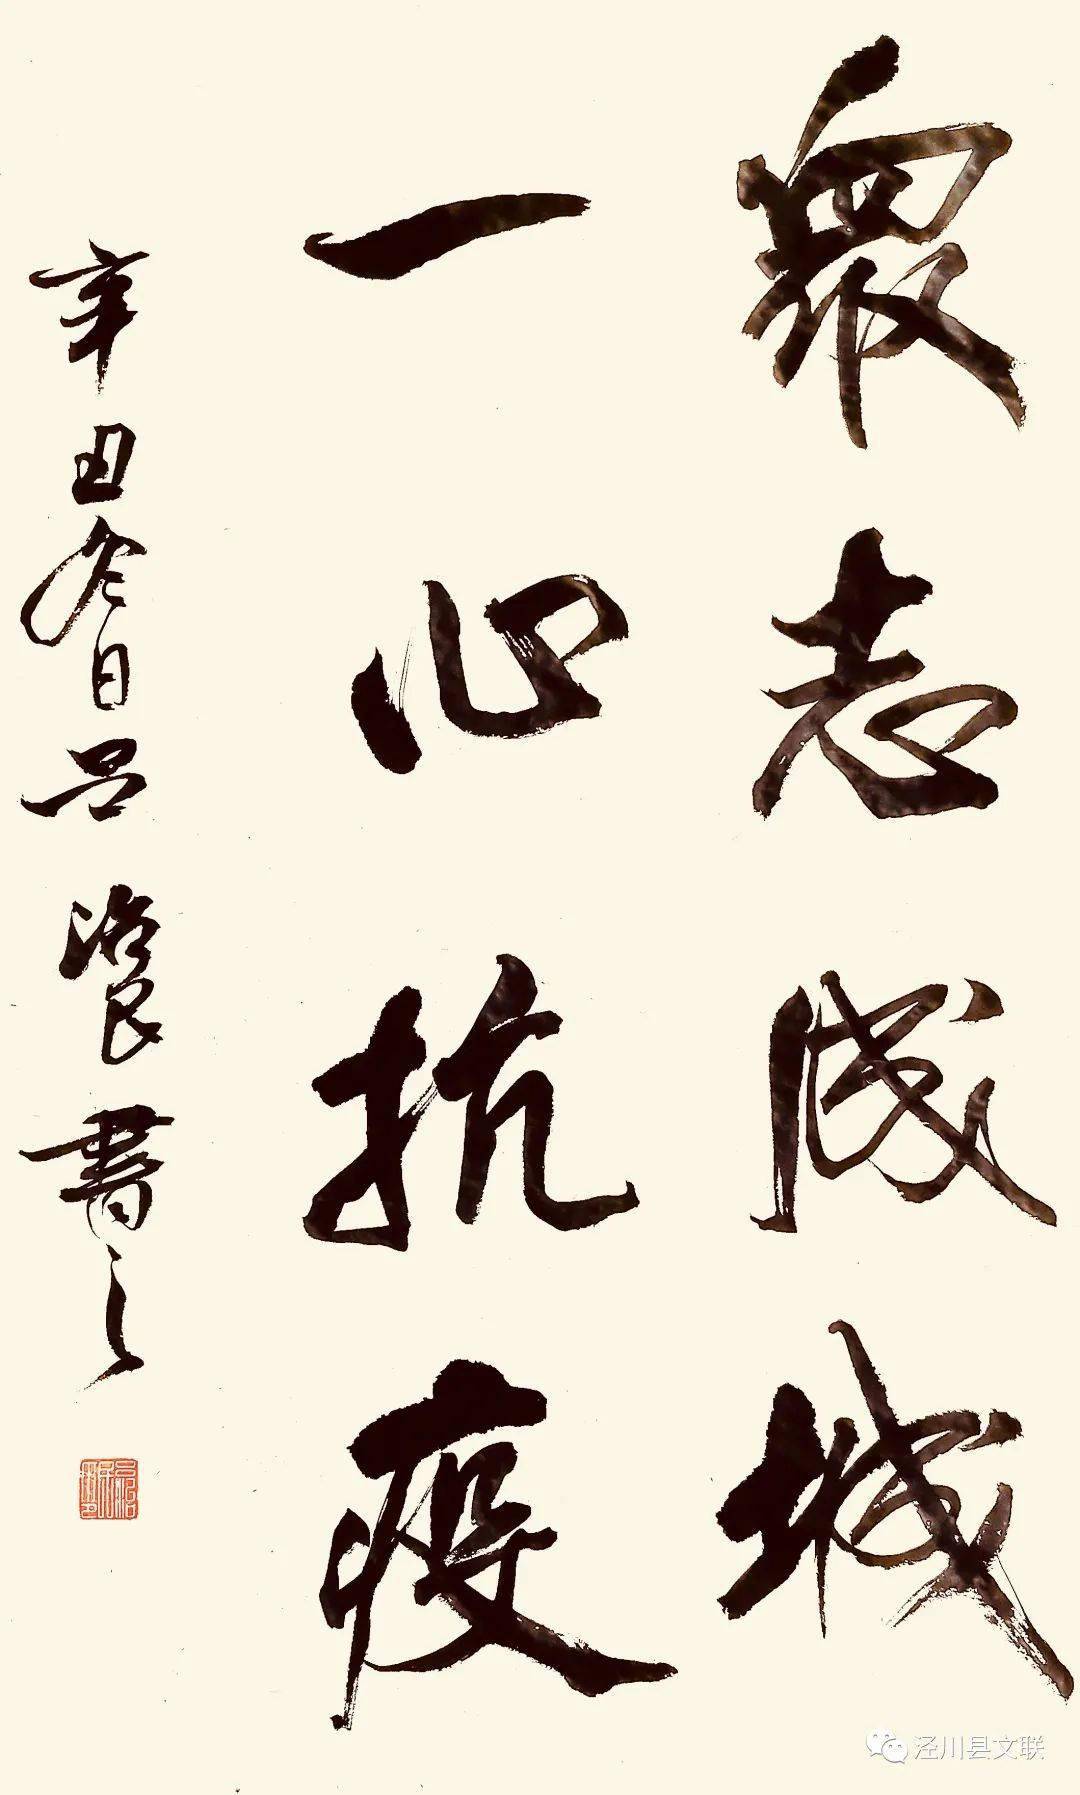 眾志成城
一心抗疫
辛丑冬日吕治民書之
泾川县文联